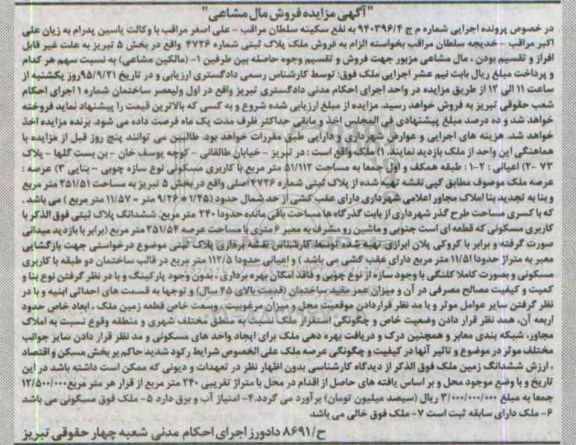 "آگهی مزایده فروش مال مشاعی"
در خصوص پرونده اجرایی شماره م ج ۹۴۰۳۹۶/۴ به نفع سکینه سلطان مراقب - علی اصغر مراقب با وکالت یاسین پدرام به زیان علی
اکبر مراقب - خدیجه سلطان مراقب بخواسته الزام به فروش ملک پلاک ثبتی شماره ۴۷۲۶ واقع در بخش ۵ تبریز به علت غیر قابل
افراز و تقسیم بودن ، مال مشاعی مزبور جهت فروش و تقسیم وجوه حاصله بین طرفین ۱- (مالکین مشاعی) به نسبت سهم هر کدام
و پرداخت مبلغ ریال بابت نیم عشر اجرایی ملک فوق: توسط کارشناس رسمی دادگستری ارزیابی و در تاریخ ۹۵/۹/۲۱ روز یکشنبه از
ساعت ۱۱ الی ۱۲ از طریق مزایده در واحد اجرای احکام مدنی دادگستری تبریز واقع در اول ولیعصر ساختمان شماره ۱ اجرای احکام
شعب حقوقی تبریز به فروش خواهد رسید. مزایده از مبلغ ارزیابی شده شروع و به کسی که بالاترین قیمت را پیشنهاد نماید فروخته
خواهد شد و ده درصد مبلغ پیشنهادی فی المجلس اخذ و مابقی حداکثر ظرف مدت یک ماه فرصت داده می شود. برنده مزایده اخذ
خواهد شد. هزینه های اجرایی و عوارض شهرداری و دارایی طبق مقررات خواهد بود. طالبین می توانند پنج روز قبل از مزایده با
هماهنگی این واحد از ملک بازدید نمایند. ۱) ملک واقع است : در تبریز - خیابان طالقانی - کوچه یوسف خان - بن بست گلها - پلاک
۷۳ -۲) اعیانی : ۲-۱ : طبقه همکف و اول جمعا به مساحت ۵۱/۱۱۲ متر مربع با کاربری مسکونی نوع سازه چوبی - بنایی ۳) عرصه :
عرصه ملک موصوف مطابق کپی نقشه تهیه شده از پلاک ثبتی شماره ۴۷۲۶ اصلی واقع در بخش ۵ تبریز به مساحت ۲۵۱/۵۱ متر مربع
و بنا به تجدید بنا املاک مجاور اعلامی شهرداری دارای عقب کشی از حد شمال حدود (۱/۲۵ + ۹/۲۶ = ۱۱/۵۷ متر مربع ) می باشد .
که با کسری مساحت طرح گذر شهرداری از بابت گذرگاه ها مساحت باقی مانده حدودا ۲۴۰ متر مربع. ششدانگ پلاک ثبتی فوق الذکر با
کاربری مسکونی که قطعه ای است جنوبی و ماشین رو مشرف به معبر ۶ متری با مساحت عرصه ۲۵۱/۵۴ متر مربع (برابر با بازدید میدانی
صورت گرفته و برابر با کروکی پلان ابرازی تهیه شده توسط کارشناس نقشه برداری پلاک ثبتی موضوع درخواستی جهت بازگشایی
معبر به متراژ حدودا ۱۱/۵۱ متر مربع دارای عقب کشی می باشد ) و اعیانی حدودا ۱۱۲/۵ متر مربع در قالب ساختمان دو طبقه با کاربری
مسکونی و بصورت کاملا کلنگی با وجود سازه از نوع چوبین و فاقد امکان بهره برداری ، بدون وجود پارکینگ و با در نظر گرفتن نوع بنا و
کمیت و کیفیت مصالح مصرفی در آن و میزان عمر مفید ساختمان (قدمت بالای ۴۵ سال) و توجها به قسمت های احداثی ابنیه و با در
نظر گرفتن سایر عوامل موثر و با مد نظر قراردادن موقعیت محل و میزان مرغوبیت ، وسعت خاص قطعه زمین ملک ، ابعاد خاص حدود
اربعه آن، همد نظر قرار دادن وضعیت خاص و چگونگی استقرار ملک نسبت به مناطق مختلف شهری و منطقه وقوع نسبت به املاک
مجاور، شبکه بندی معابر و همچنین درک و دریافت بهره دهی ملک برای ایجاد واحد های مسکونی و مد نظر قرار دادن سایر جوانب
مختلف موثر در موضوع و تاثیر آنها در کیفیت و چگونگی عرصه ملک علی الخصوص شرایط رکود شدید حاکم بر بخش مسکن و اقتصاد
، ارزش ششدانگ زمین ملک فوق الذکر از دیدگاه کارشناسی بدون اظهار نظر در تعهدات و دیونی که ممکن است داشته باشد در این
تاریخ و با وضع موجود محل و بر اساس یافته های حاصل از اقدام در محل با متراژ تقریبی ۲۴۰ متر مربع از قرار هر متر مربع ۱۲/۵۰۰/۰۰۰
جمعا به مبلغ ۳/۰۰۰/۰۰۰/۰۰۰ ریال (سیصد میلیون تومان) برآورد می گردد. ۴- امتیاز آب و برق دارد ۵- ملک فوق مسکونی می باشد
۶- ملک دارای سابقه ثبت است ۷- ملک فوق خالی می باشد
ح/۸۶۹۱ دادورز اجرای احکام مدنی شعبه چهار حقوقی تبریز